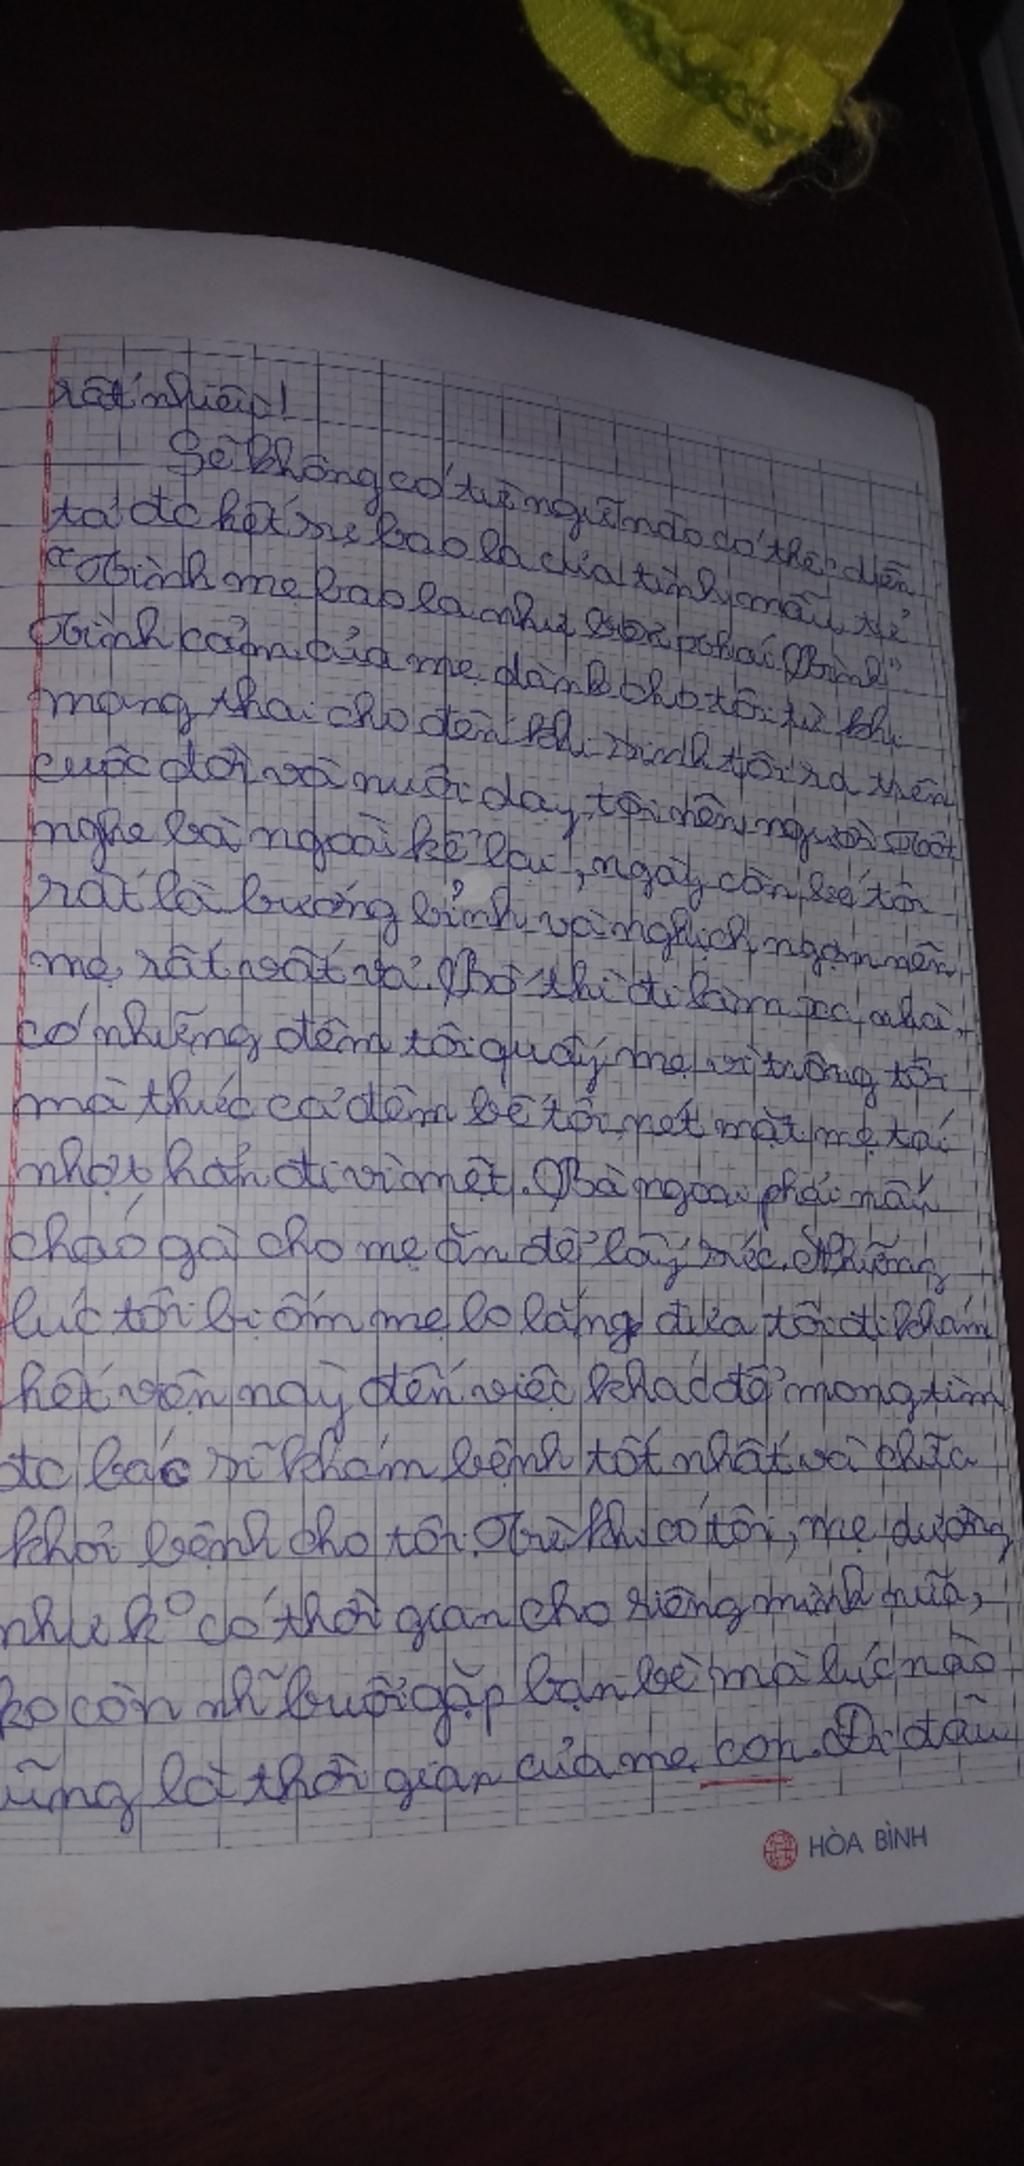 rất nhiều!
Sẽ không có từ ngữ nào có thể diễn
tả đc hết sự bao la của tình mẫu tử
"Tình mẹ bao la như biển Thái Bình"
Tình cảm của mẹ dành cho tôi từ khi
mang thai cho đến khi sinh tôi ra trên
cuộc đời và nuôi dạy tôi nên người
nghe bà ngoại kể lại, ngày còn bé tôi
rất là bướng bỉnh và nghịch ngợm nên
mẹ rất vất vả. Bố thì đi làm xa nhà,
có những đêm tôi quấy mẹ vì trông tôi
mà thức cả đêm bế tôi nét mặt mẹ tái
nhợt hẳn đi vì mệt. Bà ngoại phải nấu
cháo gà cho mẹ ăn để lấy sức. Những
lúc tôi bị ốm mẹ lo lắng đưa tôi đi khám
hết viện này đến viện khác để mong tìm
đc bác sĩ khám bệnh tốt nhất và chữa
khỏi bệnh cho tôi. Từ khi có tôi, mẹ dường
như k° có thời gian cho riêng mình nữa,
ko còn nh~ buổi gặp bạn bè mà lúc nào
cũng là thời gian của mẹ con. Đi đâu
HÒA BÌNH